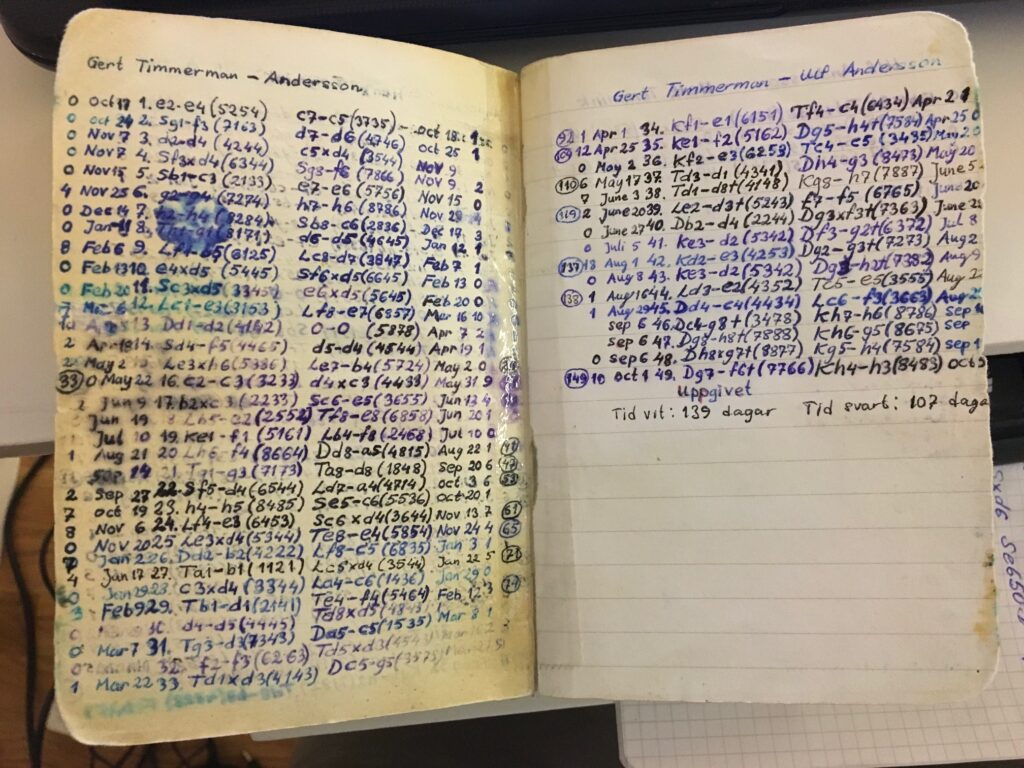 Gert Timmerman – Andersson
0 Oct 17 1. e2-e4 (5254) c7-c5 (3735) Oct 18 1
0 Oct 24 2. Sg1-f3 (7163) d7-d6 (4746) Oct 25 1
0 Nov 7 3. d2-d4 (4244) c5xd4 (3544) Nov 9
0 Nov 7 4. Sf3xd4 (6344) Sg8-f6 (7866) Nov 9 2
0 Nov 15 5. Sb1-c3 (2133) e7-e6 (5756) Nov 15 0
4 Nov 25 6. g2-g4 (7274) h7-h6 (8786) Nov 29 4
0 Dec 14 7. h2-h4 (8284) Sb8-c6 (2836) Dec 17 3
0 Jan 11 8. Th1-g1 (8171) d6-d5 (4645) Jan 12 1
8 Feb 6 9. Lf1-b5 (6125) Lc8-d7 (3847) Feb 7 1
0 Feb 13 10. e4xd5 (5445) Sf6xd5 (6645) Feb 13 0
0 Feb 20 11. Sc3xd5 (3345) e6xd5 (5645) Feb 20 0
7 Mar 6 12. Lc1-e3 (3153) Lf8-e7 (6857) Mar 16 10
13. Dd1-d2 (4142) 0-0 (5878) Apr 7 2
2 Apr 18 14. Sd4-f5 (4465) d5-d4 (4544) Apr 19 1
2 May 2 15. Le3xh6 (5386) Le7-b4 (5724) May 2 0
(33) 0 May 22 16. c2-c3 (3233) d4xc3 (4433) May 31 9
2 Jun 9 17. b2xc3 (2233) Sc6-e5 (3655) Jun 13 4
Jun 19 18. Lb5-e2 (2552) Tf8-e8 (6858) Jun 20 1
1 Jul 10 19. Ke1-f1 (5161) Lb4-f8 (2468) Jul 10 0
1 Aug 21 20. Lh6-f4 (8664) Dd8-a5 (4815) Aug 22 1
Sep 14 21. Tg1-g3 (7173) Ta8-d8 (1848) Sep 20 6
2 Sep 27 22. Sf5-d4 (6544) Ld7-a4 (4714) Oct 3 6
7 Oct 19 23. h4-h5 (8485) Se5-c6 (5536) Oct 20 1
8 Nov 6 24. Lf4-e3 (6453) Sc6xd4 (3644) Nov 13 7 (61)
0 Nov 20 25. Le3xd4 (5344) Te8-e4 (5854) Nov 24 4 (65)
7 Jan 2 26. Dd2-b2 (4222) Lf8-c5 (6835) Jan 3 1
4 Jan 17 27. Ta1-b1 (1121) Lc5xd4 (3544) Jan 22 5
0 Jan 29 28. c3xd4 (3344) La4-c6 (1436) Jan 29 0
3 Feb 9 29. Tb1-d1 (2141) Te4-f4 (5464) Feb 12 3
30. d4-d5 (4445) Td8xd5 (4845) Mar 8 1
0 Mar 7 31. Tg3-d3 (7343) Da5-c5 (1535)
32. f2-f3 (6263) Td5xd3 (4543)
1 Mar 22 33. Td1xd3 (4143) Dc5-g5 (3575)
Gert Timmerman – Ulf Andersson
1 Apr 1 34. Kf1-e1 (6151) Tf4-c4 (6434) Apr 2 1
12 Apr 25 35. Ke1-f2 (5162) Dg5-h4+ (7584) Apr 25 0
0 May 2 36. Kf2-e3 (6253) Tc4-c5 (3435) May 2 0
(110) 6 May 17 37. Td3-d1 (4341) Dh4-g3 (8473) May 20
7 June 3 38. Td1-d8+ (4148) Kg8-h7 (7887) June 5
(119) 2 June 20 39. Le2-d3+ (5243) f7-f5 (6765) June 20
0 June 27 40. Db2-d4 (2244) Dg3xf3+ (7363) June 2
0 Juli 5 41. Ke3-d2 (5342) Df3-g2+ (6372) Jul 8
(137) 18 Aug 1 42. Kd2-e3 (4253) Dg2-g3+ (7273) Aug 2
0 Aug 8 43. Ke3-d2 (5342) Dg3-h2+ (7382) Aug 9
(138) 1 Aug 16 44. Ld3-e2 (4352) Tc5-e5 (3555) Aug 2
1 Aug 29 45. Dd4-c4 (4434) Lc6-f3 (3663) Aug 2
sep 6 46. Dc4-g8+ (3478) Kh7-h6 (8786) sep
sep 6 47. Dg8-h8+ (7888) Kh6-g5 (8675) sep
0 sep 6 48. Dh8xg7+ (8877) Kg5-h4 (7584) sep 1
(149) 10 Oct 1 49. Dg7-f6+ (7766) Kh4-h3 (8483) Oct 5
Uppgivet
Tid vit: 139 dagar Tid svart: 107 daga